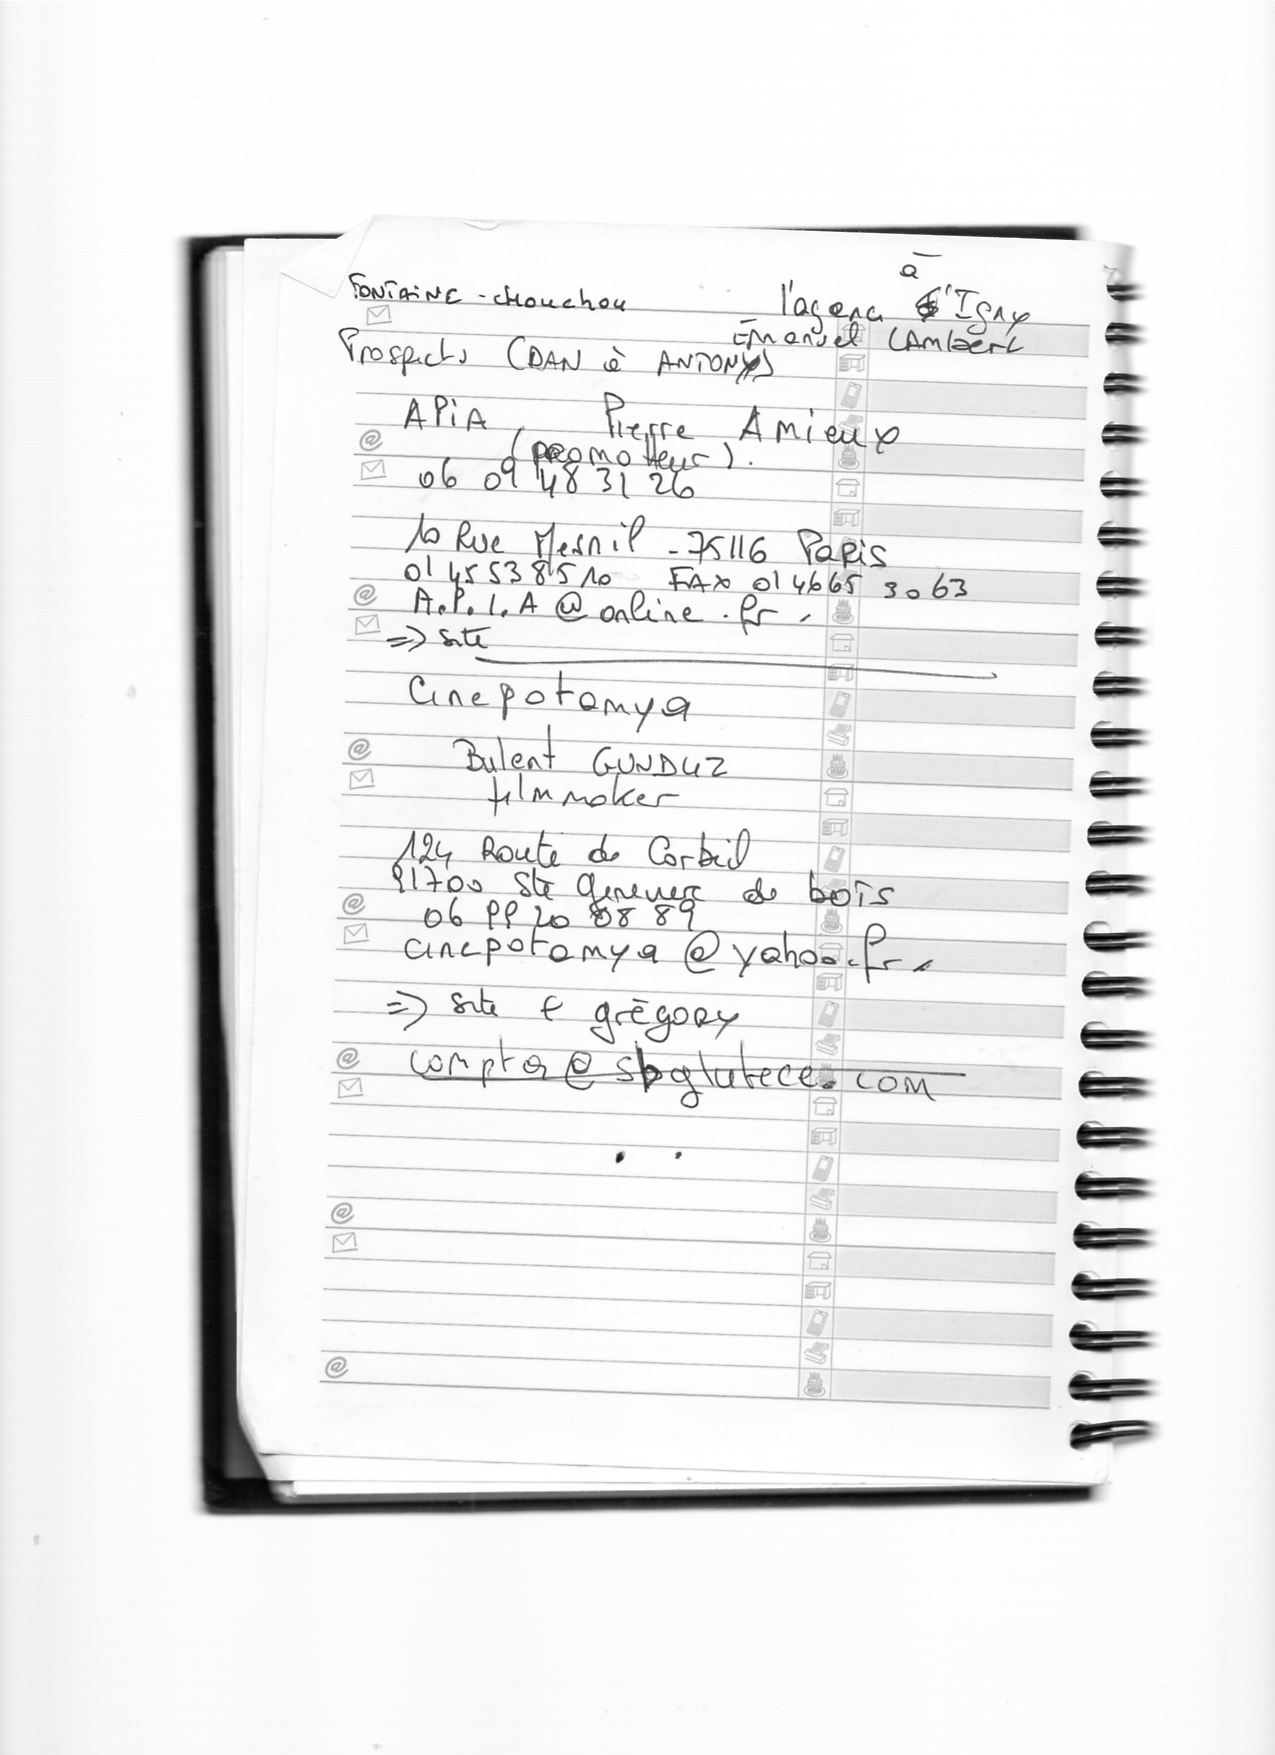 FONTAINE - chouchou
à
l'agence d'Igny
Emanuel LAmbert
Prospects (DAN à ANTONY)
APiA Pierre Amieux
(promoteur).
06 09 48 31 26
10 Rue Mesnil - 75116 Paris
01 45 53 85 10 FAX 01 46 65 30 63
A.P.I.A @ online.fr.
=> site
Cinepotamya
Bulent GUNDUZ
filmmaker
124 Route de Corbeil
91700 Ste Genevieve de bois
06 99 20 88 89
cinepotamya @ yahoo.fr.
=> site & grégory
compta @ sbglutece.com